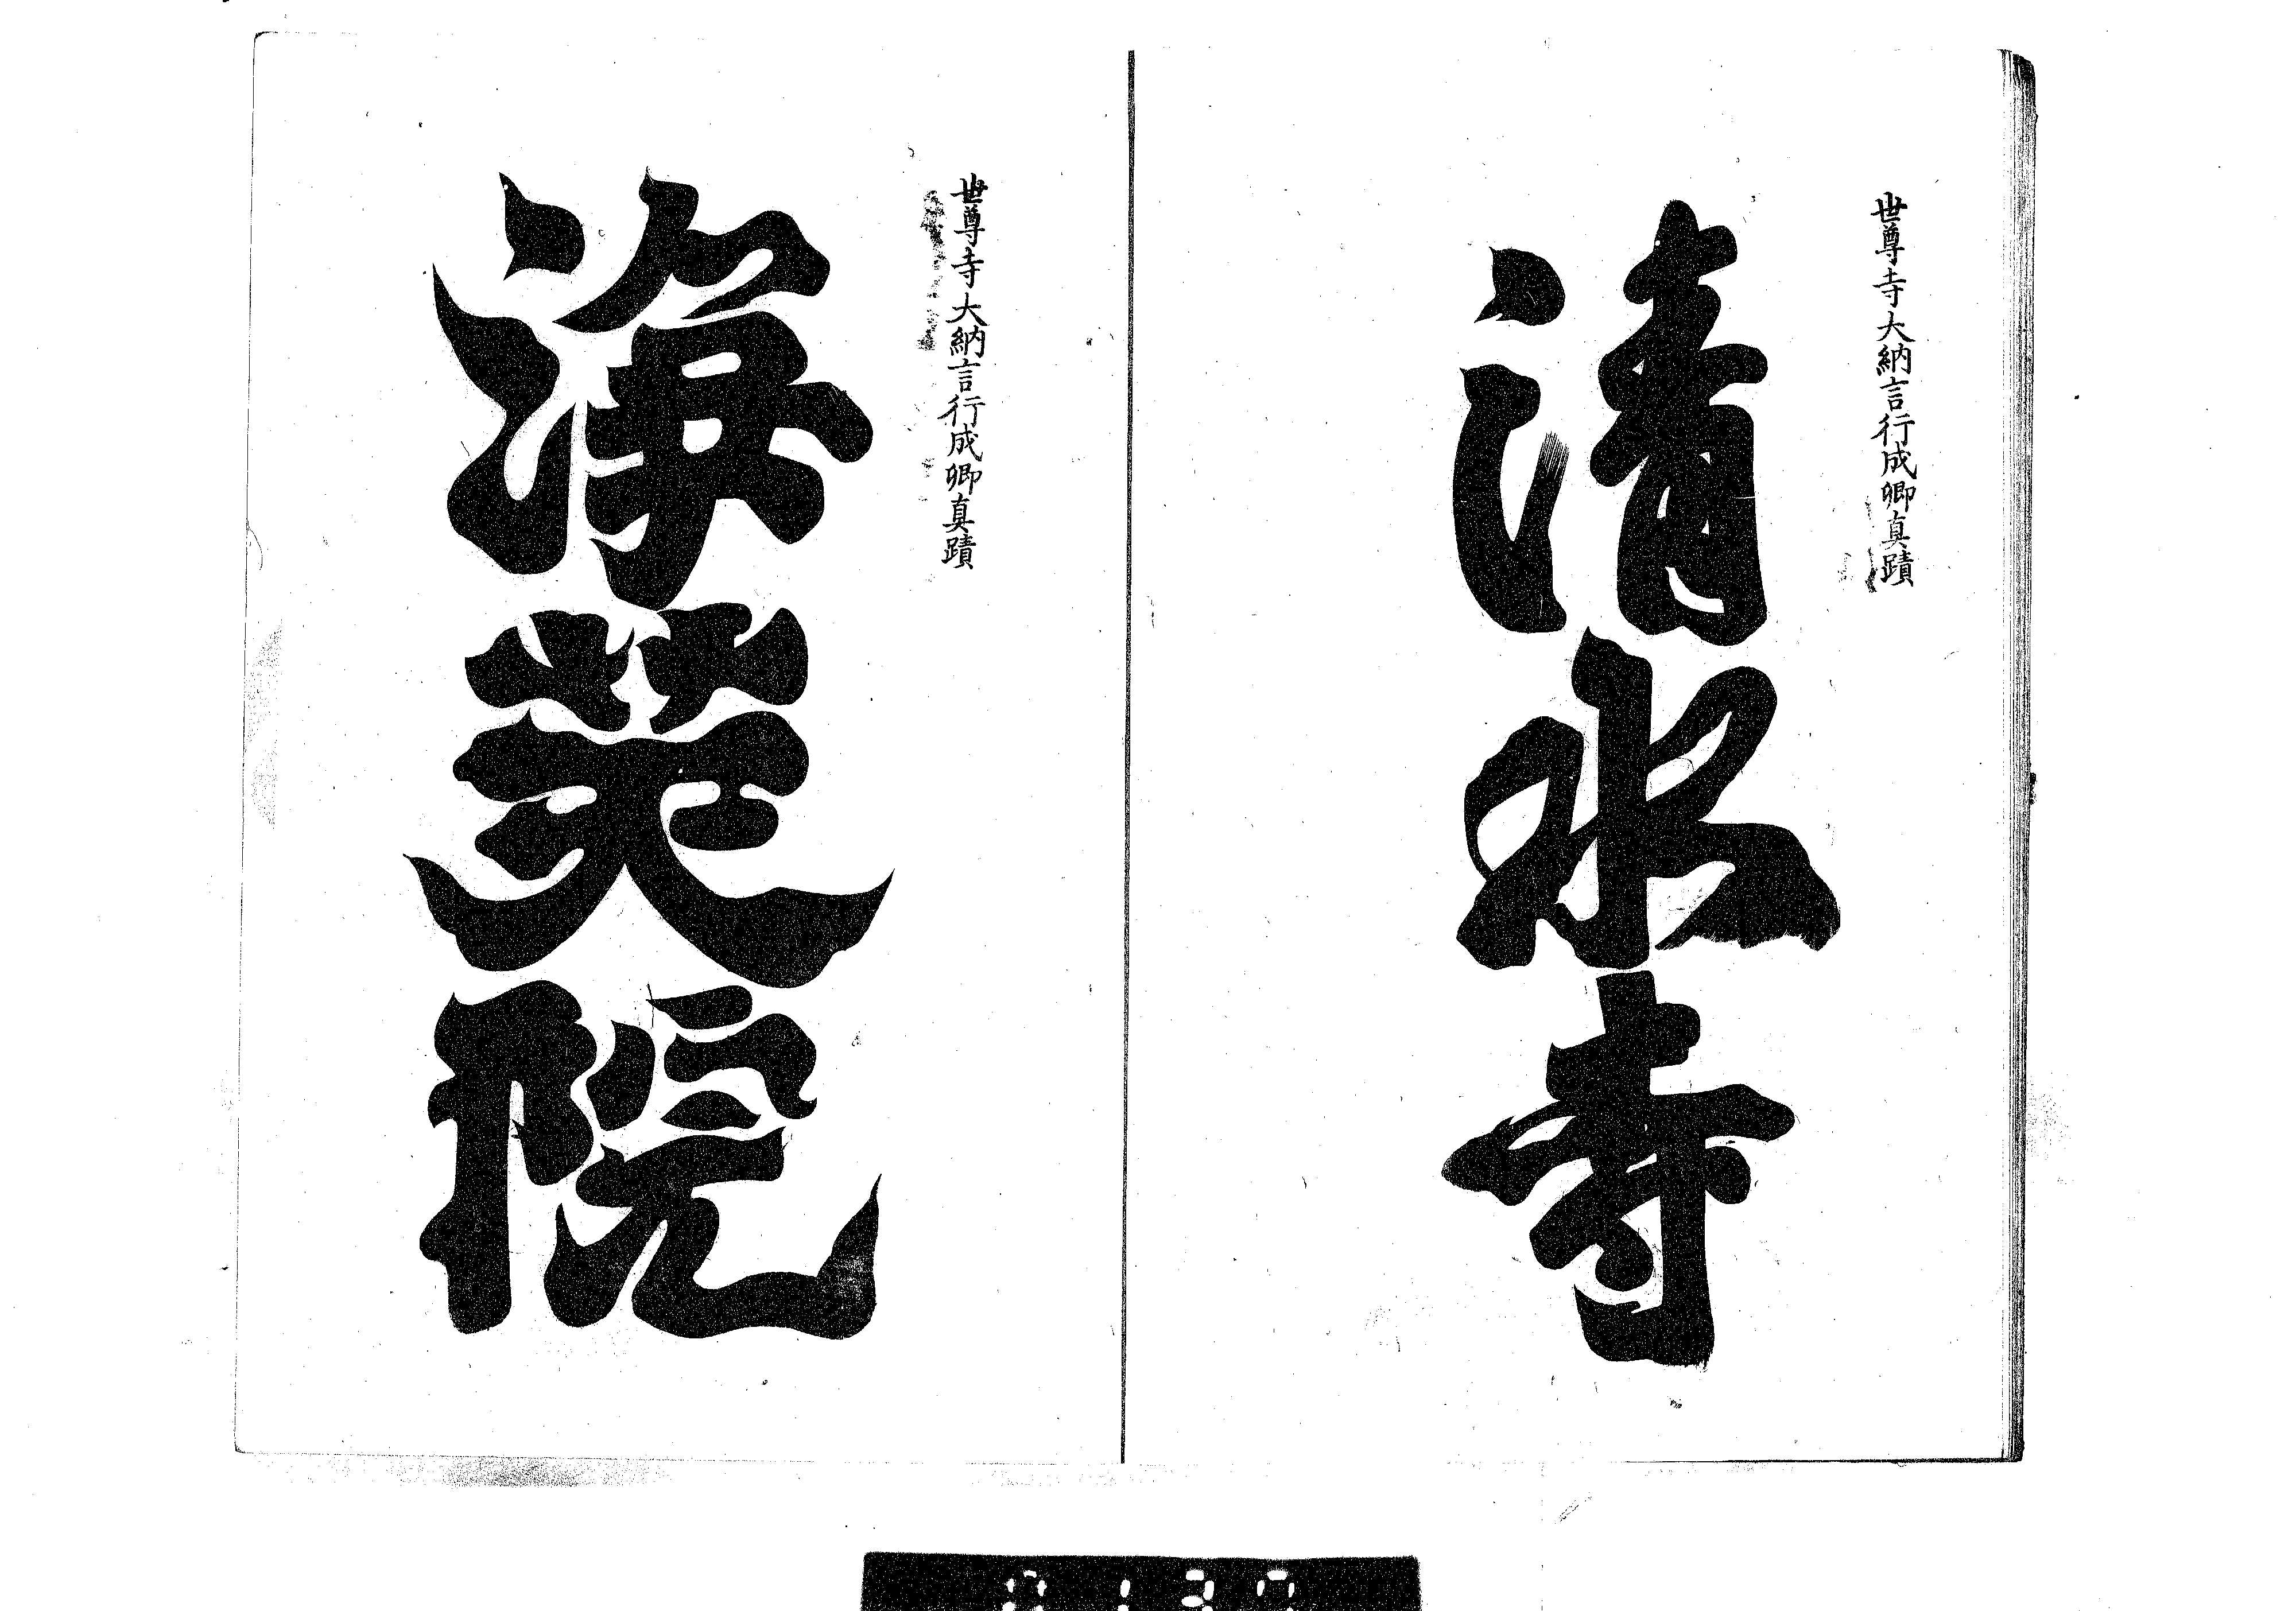 世尊寺大納言行成卿真蹟
清水寺
世尊寺大納言行成卿真蹟
海英院